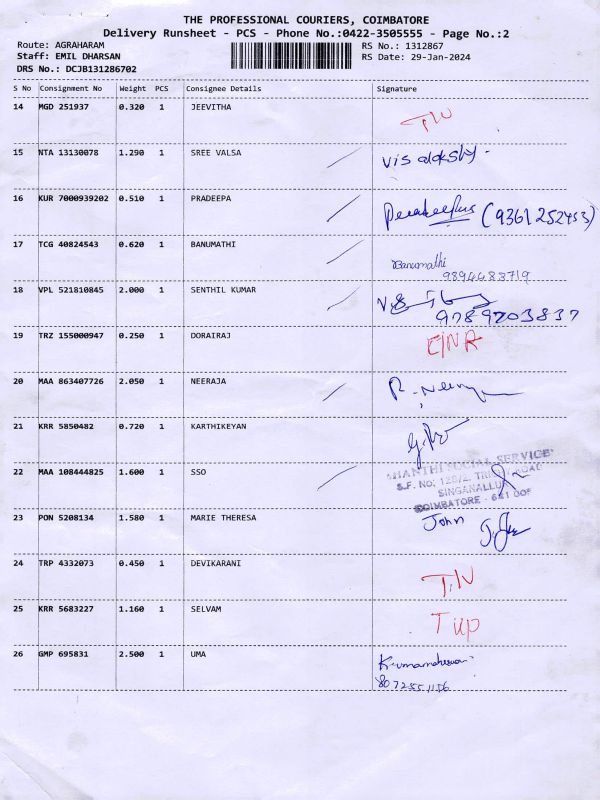 THE PROFESSIONAL COURIERS, COIMBATORE
Delivery Runsheet - PCS - Phone No.:0422-3505555 - Page No.:2
Route: AGRAHARAM
Staff: EMIL DHARSAN
DRS No.: DCJB131286702
RS No.: 1312867
RS Date: 29-Jan-2024
S No Consignment No Weight PCS Consignee Details Signature
14 MGD 251937 0.320 1 JEEVITHA
15 NTA 13130078 1.290 1 SREE VALSA
16 KUR 7000939202 0.510 1 PRADEEPA (9361252453)
17 TCG 40824543 0.620 1 BANUMATHI Banumathi
9894483719
18 VPL 521810845 2.000 1 SENTHIL KUMAR
9789203837
19 TRZ 155000947 0.250 1 DORAIRAJ
20 MAA 863407726 2.050 1 NEERAJA
21 KRR 5850482 0.720 1 KARTHIKEYAN
22 MAA 108444825 1.600 1 SSO
SOCIAL SERVICE
SINGANALLUR
COIMBATORE - 641 005
23 PON 5208134 1.580 1 MARIE THERESA John
24 TRP 4332073 0.450 1 DEVIKARANI
25 KRR 5683227 1.160 1 SELVAM
26 GMP 695831 2.500 1 UMA
8072551156